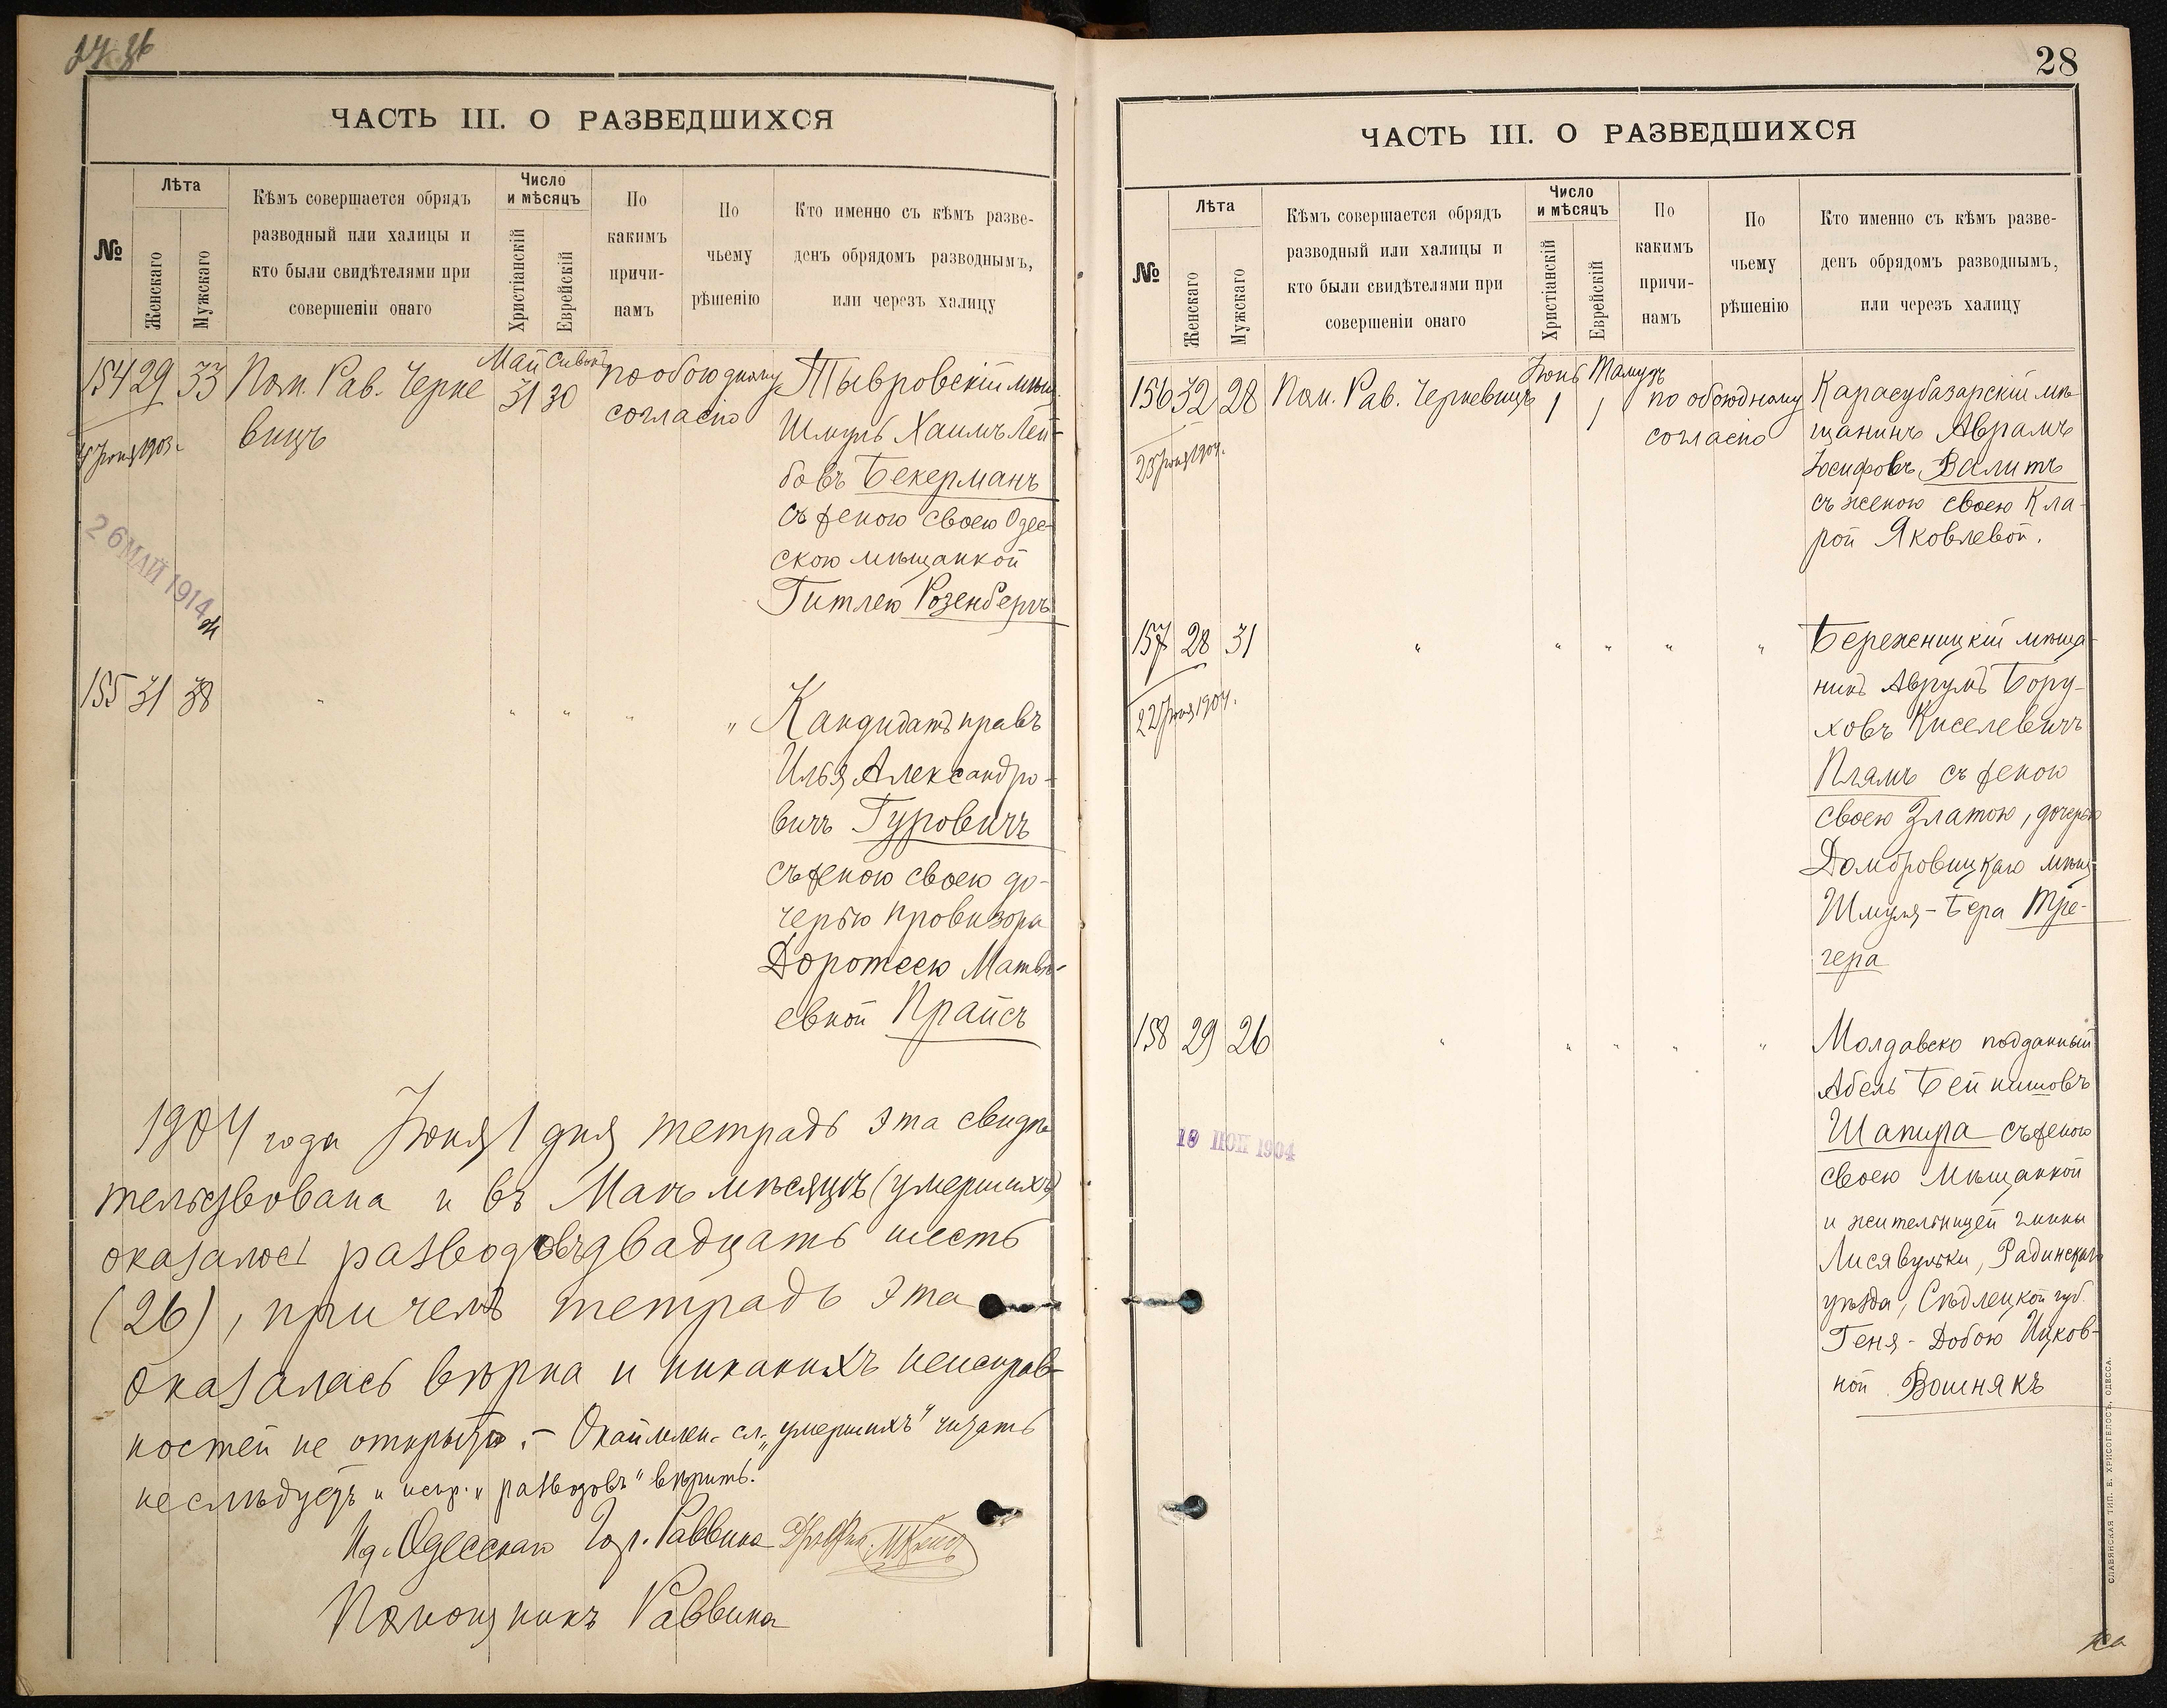 ЧАСТЬ III. О РАЗВЕДШИХСЯ
№
Лѣта
Женскаго
Мужскаго
Кѣмъ совершается обрядъ
разводный или халицы и
кто были свидѣтелями при
совершеніи онаго
Число
и мѣсяцъ
Христіанскій
Еврейскій
По
какимъ
причи-
намъ
По
чьему
рѣшенію
Кто именно съ кѣмъ разве-
денъ обрядомъ разводнымъ,
или черезъ халицу
Май Сивонъ
154 29 33 Пом. Рав. Черке 31 30 по обоюдному Тывровскій мѣщ.
вицъ согласію Шмуль Хаимъ Лей-
бовъ Бекерманъ
съ женою своею Одес-
скою мѣщанкой
Гитлею Розенбергъ
26 МАЙ 1914
155 31 38 " " " " " Кандидатъ правъ
Илья Александро-
вичъ Гуровичъ
съ женою своею до-
черью провизора
Доротеею Матвѣ-
евной Прайсъ
1904 года Іюня 1 дня тетрадь эта свидѣ
тельствована и въ Маѣ мѣсяцѣ (умершихъ)
оказалось разводовъ двадцать шесть
(26), при чемъ тетрадь эта
оказалась вѣрна и никакихъ неисправ-
ностей не открыто. – Окаймлен. сл. „умершихъ" читать
не слѣдуетъ и испр. „разводовъ" вѣрить.
И д. Одесскаго Гор. Раввина
Помощникъ Раввина
28
ЧАСТЬ III. О РАЗВЕДШИХСЯ
№
Лѣта
Женскаго
Мужскаго
Кѣмъ совершается обрядъ
разводный или халицы и
кто были свидѣтелями при
совершеніи онаго
Число
и мѣсяцъ
Христіанскій
Еврейскій
По
какимъ
причи-
намъ
По
чьему
рѣшенію
Кто именно съ кѣмъ разве-
денъ обрядомъ разводнымъ,
или черезъ халицу
Іюнь Тамузъ
156 32 28 Пом. Рав. Черкевицъ 1 1 по обоюдному Карасубазарскій мѣ
согласію щанинъ Аврамъ
23 Іюня 1904. Іосифовъ Валитъ
съ женою своею Кла-
рой Яковлевой.
157 28 31 " " " " " Бережницкій мѣща-
нинъ Аврумъ Бору-
22 Іюня 1904. ховъ Киселевичъ
Плямъ съ женою
своею Златою, дочерью
Домбровицкаго мѣщ.
Шмуля-Бера Тре-
гера
158 29 26 " " " " " Молдавско подданный
Абель Бейнишовъ
Шапира съ женою
своею мѣщанкой
и жительницей гмины
Лисявульки, Радинскаго
уѣзда, Сѣдлецкой губ.
Геня-Добою Ицков-
ной Вошнякъ
СЛАВЯНСКАЯ ТИП. Е. ХРИСОГЕЛОСЪ, ОДЕССА.